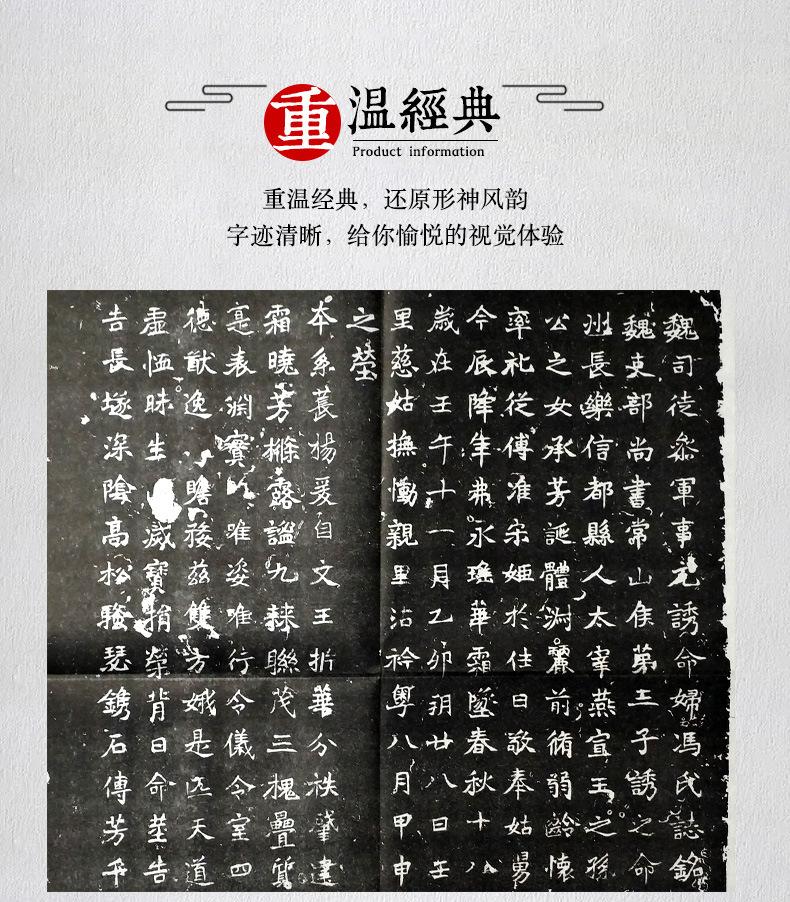 重温經典
Product information
重温经典，还原形神风韵
字迹清晰，给你愉悦的视觉体验
魏司徒叅軍事元誘命婦馮氏誌銘
魏吏部尚書常山侯第三子誘之命
州長樂信都縣人太宰燕宣王之孫
公之女承芳誕體淵麗前脩弱齡懷
率礼從傅准宋姬於往日敬奉姑舅
今辰降年弗永瑤華霜墜春秋十八
歲在壬午十一月乙卯朔廿八日壬
里慈姑撫慟親里沾衿粤八月甲申
之塋
本系萇楊爰自文王折華分袟肇建
霜曉芳露謐九棘聯茂三槐疊質
表淵唯姿唯行令儀令室四
德猷逸瞻茲雙方娥是匹天道
虛恤昧生滅寶捐榮背日命告
吉長埏深陰高松騷瑟鐫石傳芳千